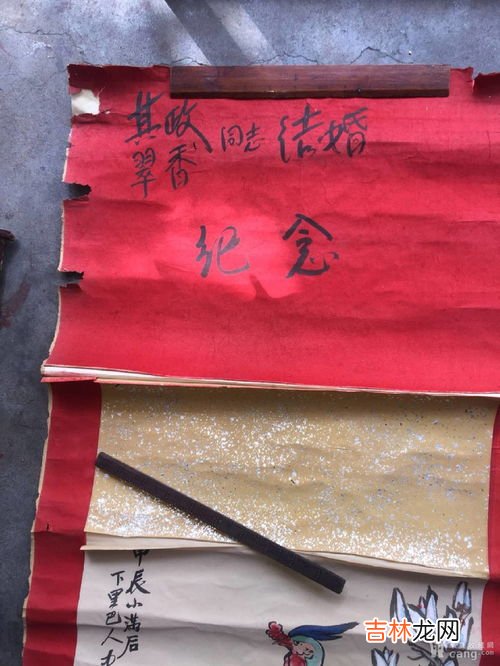 其政
翠香
同志 结婚
纪念
甲辰小满后
下里巴人
吉林龙网
cang.com